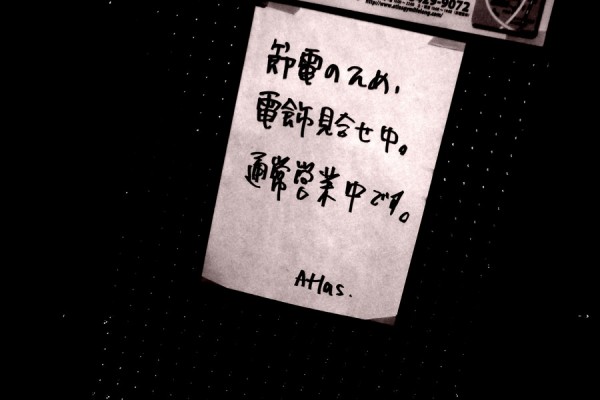 9-9072
節電のため、
電飾見合せ中。
通常営業中です。
Atlas.